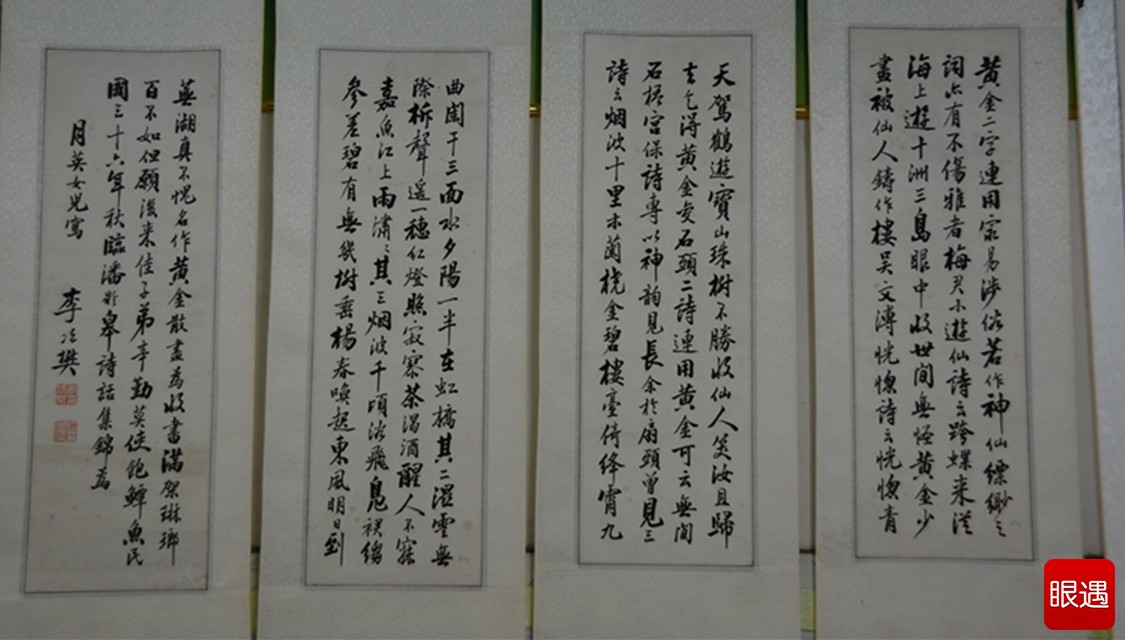 黄金二字連用容易涉俗若作神仙縹緲之
詞亦有不傷雅者梅君小遊仙詩云跨蝶来從
海上遊十洲三島眼中收世間無怪黄金少
盡被仙人鑄作樓吴文溥恍惚詩云恍惚青
天駕鶴遊寶山珠樹不勝收仙人笑汝且歸
去乞得黄金變石頭二詩連用黄金可云無間
石梧宫保詩專以神韵見長余於扇頭曾見三
詩云烟波十里木蘭橈金碧樓臺倚絳霄九
曲闌干三面水夕陽一半在虹橋其二溼雲無
際柝聲遥一穗紅燈照寂寥茶渴酒醒人不寐
嘉魚江上雨瀟〻其三烟波千頃浴飛鳧裙縐
參差碧有無幾樹垂楊春喚起東風明日到
蕪湖真不愧名作黄金散盡為收書滿架琳瑯
百不如但願後来佳子弟辛勤莫使飽蟫魚民
國三十六年秋臨潘皋詩話集錦為
月英女兒寫
李樊
眼遇